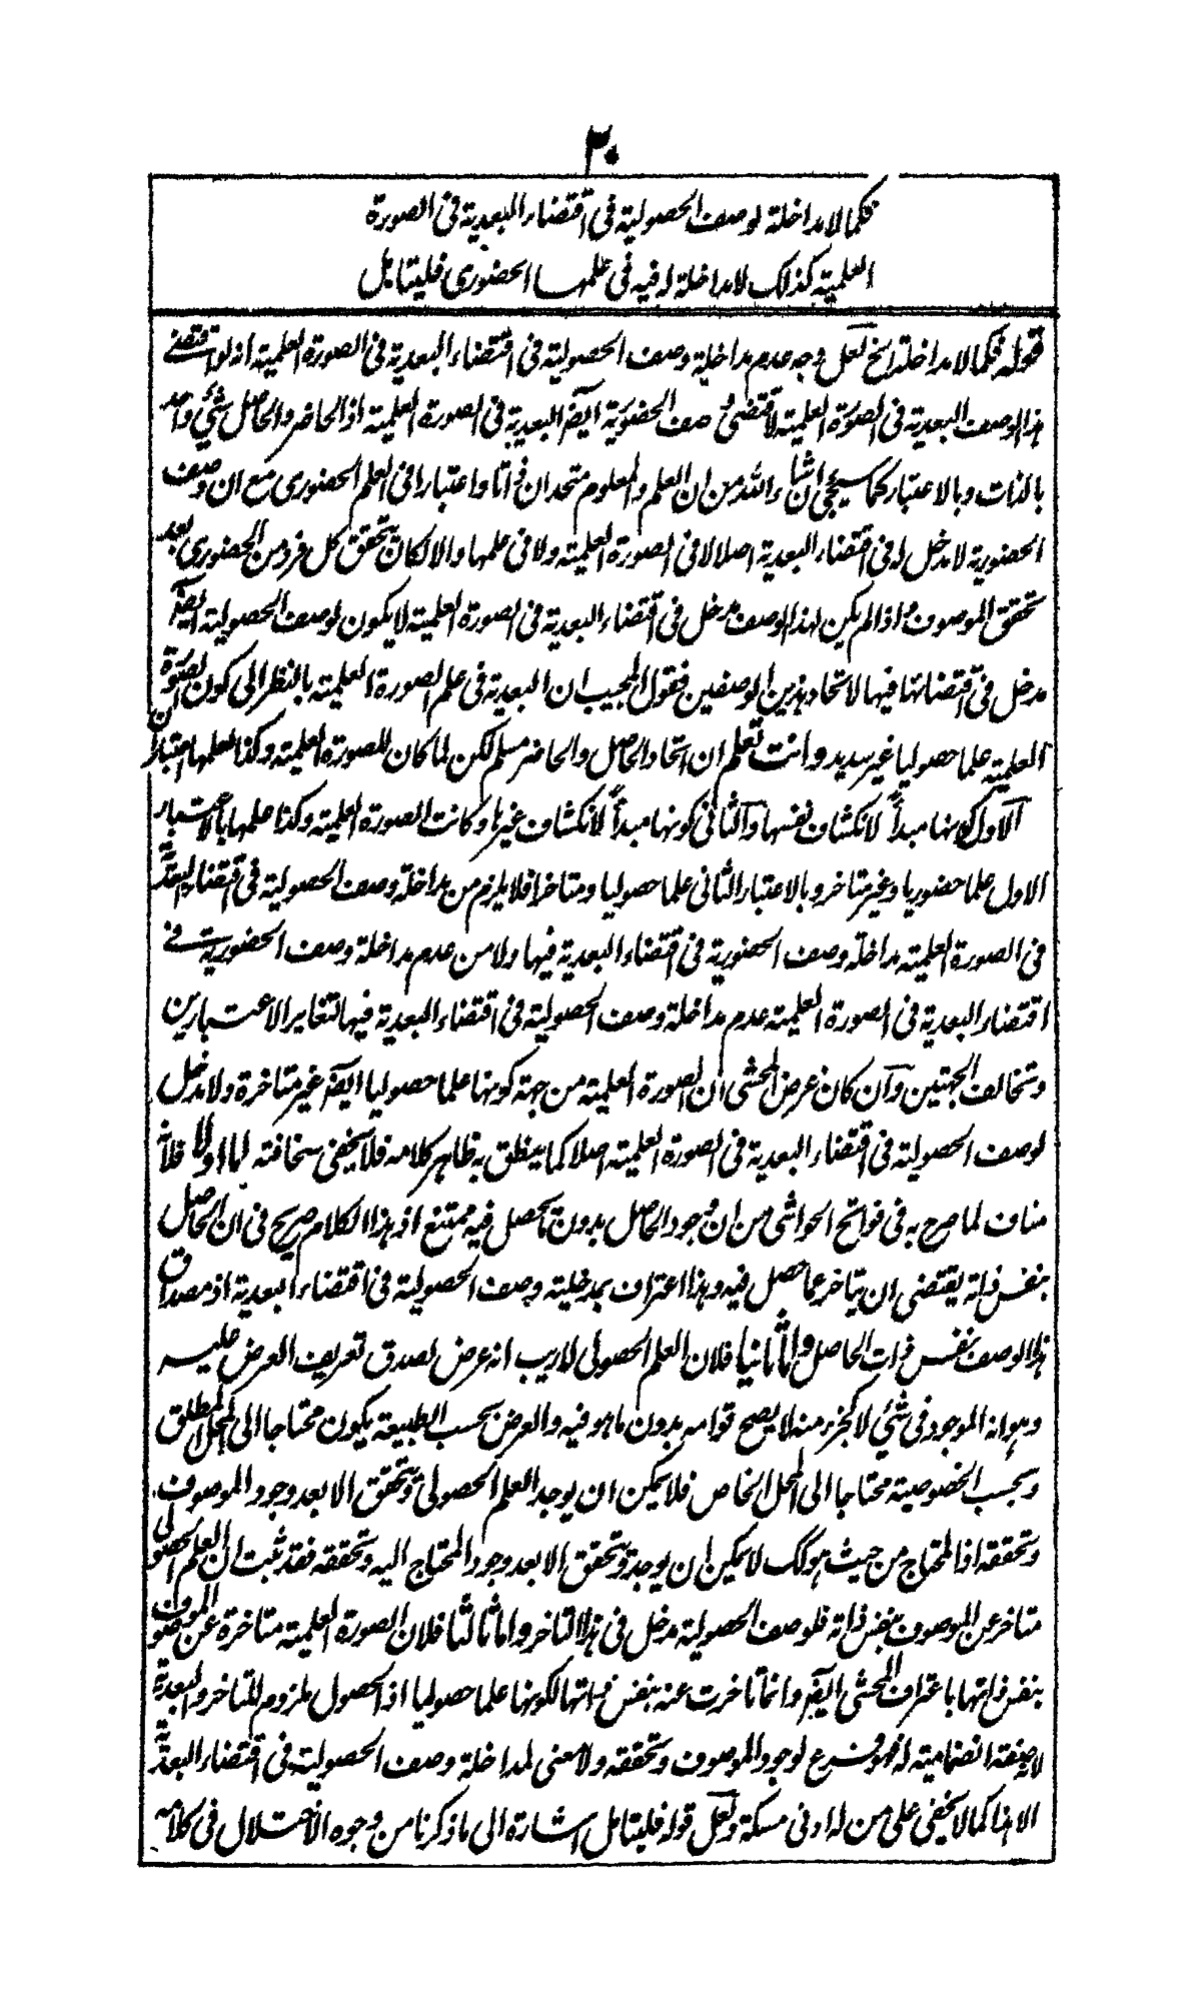 ٣٠
فكما لا مداخلة لوصف الحصولية فى اقتضاء البعدية فى الصورة
العلمية كذلك لا مداخلة له فيه فى علمها الحضورى فليتامل
قوله فكما لا مداخلة الخ لعل وجه عدم مداخلة وصف الحصولية فى اقتضاء البعدية فى الصورة العلمية انه لو اقتضى
هذا الوصف البعدية فى الصورة العلمية لاقتضى وصف الحضورية ايضا البعدية فى الصورة العلمية اذ الحاضر والحاصل شئ واحد
بالذات وبالاعتبار كما سيجئ ان شاء الله من ان العلم والمعلوم متحدان ذاتا واعتبارا فى العلم الحضورى مع ان وصف
الحضورية لا مدخل له فى اقتضاء البعدية اصلا لا فى الصورة العلمية ولا فى علمها والا لكان يتحقق كل فرد من الحضورى بعد
تحقق الموصوف واذا لم يكن لهذا الوصف مدخل فى اقتضاء البعدية فى الصورة العلمية لا يكون لوصف الحصولية ايضا
مدخل فى اقتضائها فيها لاتحاد هذين الوصفين فقول المجيب ان البعدية فى علم الصورة العلمية بالنظر الى كون الصورة
العلمية علما حصوليا غير سديد وانت تعلم ان اتحاد الحاصل والحاضر مسلم لكن لما كان للصورة العلمية وكذا لعلمها اعتباران
الاول كونها مبدأ لانكشاف نفسها والثانى كونها مبدأ لانكشاف غيرها وكانت الصورة العلمية وكذا علمها بالاعتبار
الاول علما حضوريا وغير متاخر وبالاعتبار الثانى علما حصوليا ومتاخرا فلا يلزم من مداخلة وصف الحصولية فى اقتضاء البعدية
فى الصورة العلمية مداخلة وصف الحضورية فى اقتضاء البعدية فيها ولا من عدم مداخلة وصف الحضورية فى
اقتضاء البعدية فى الصورة العلمية عدم مداخلة وصف الحصولية فى اقتضاء البعدية فيها لتغاير الاعتبارين
وتخالف الجهتين وان كان غرض المحشى ان الصورة العلمية من جهة كونها علما حصوليا ايضا غير متاخرة ولا مدخل
لوصف الحصولية فى اقتضاء البعدية فى الصورة العلمية اصلا كما ينطق به ظاهر كلامه فلا يخفى سخافته اما اولا فلانه
مناف لما صرح به فى فواتح الحواشى من ان وجود الحاصل بدون ما يحصل فيه ممتنع اذ هذا الكلام صريح فى ان الحاصل
بنفس ذاته يقتضى ان يتاخر عما حصل فيه وهذا اعتراف بمدخلية وصف الحصولية فى اقتضاء البعدية اذ مصداق
هذا الوصف نفس ذات الحاصل واما ثانيا فلان العلم الحصولى لا ريب انه عرض لصدق تعريف العرض عليه
وهو انه الموجود فى شئ لا كجزء منه لا يصح قوامه بدون ما هو فيه والعرض بحسب الطبيعة يكون محتاجا الى المحل المطلق
وبحسب الخصوصية محتاجا الى المحل الخاص فلا يمكن ان يوجد العلم الحصولى ويتحقق الا بعد وجود الموصوف
وتحققه اذ المحتاج من حيث هو كك لا يمكن ان يوجد ويتحقق الا بعد وجود المحتاج اليه وتحققه فقد ثبت ان العلم الحصولى
متاخر عن الموصوف بنفس ذاته فلوصف الحصولية مدخل فى هذا التاخر واما ثالثا فلان الصورة العلمية متاخرة عن الموصوف
بنفس ذاتها باعتراف المحشى ايضا وانما تاخرت عنه بنفس ذاتها لكونها علما حصوليا اذ الحصول ملزوم للتاخر والبعدية
لانه صفة انضمامية له فهو فرع لوجود الموصوف وتحققه ولا معنى لمداخلة وصف الحصولية فى اقتضاء البعدية
الا هذا كما لا يخفى على من له ادنى مسكة ولعل قوله فليتامل اشارة الى ما ذكرنا من وجوه الاختلال فى كلامه